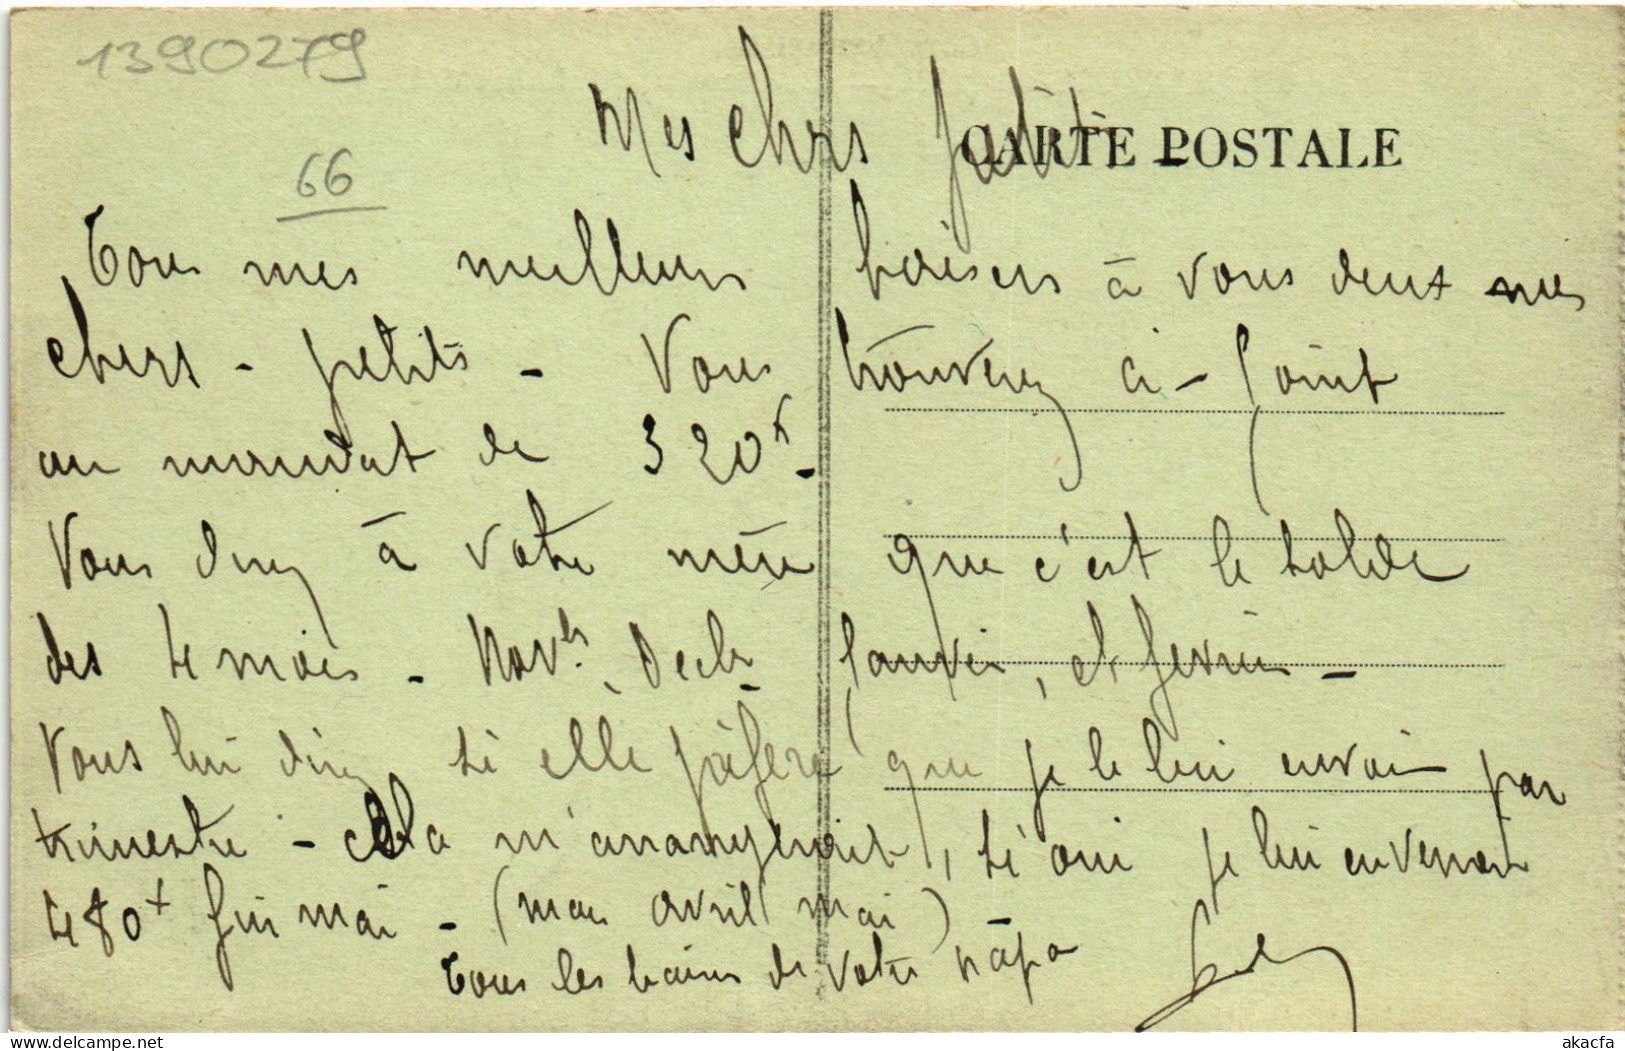 1390279
66
CARTE POSTALE
Mes chers petits -
Tous mes meilleurs baisers à vous deux mes
chers - petits - Vous trouverez ci - joint
un mandat de 320f -
Vous direz à votre mère que c'est le solde
des 4 mois - Novbr. Decbr Janvier, et fevrier -
Vous lui direz si elle préfère que je le lui envoie par
trimestre - cela m'arrangerait, si oui je lui enverrai
480f fin mai - (mars avril mai) -
Tous les baisers de votre papa
akacfa